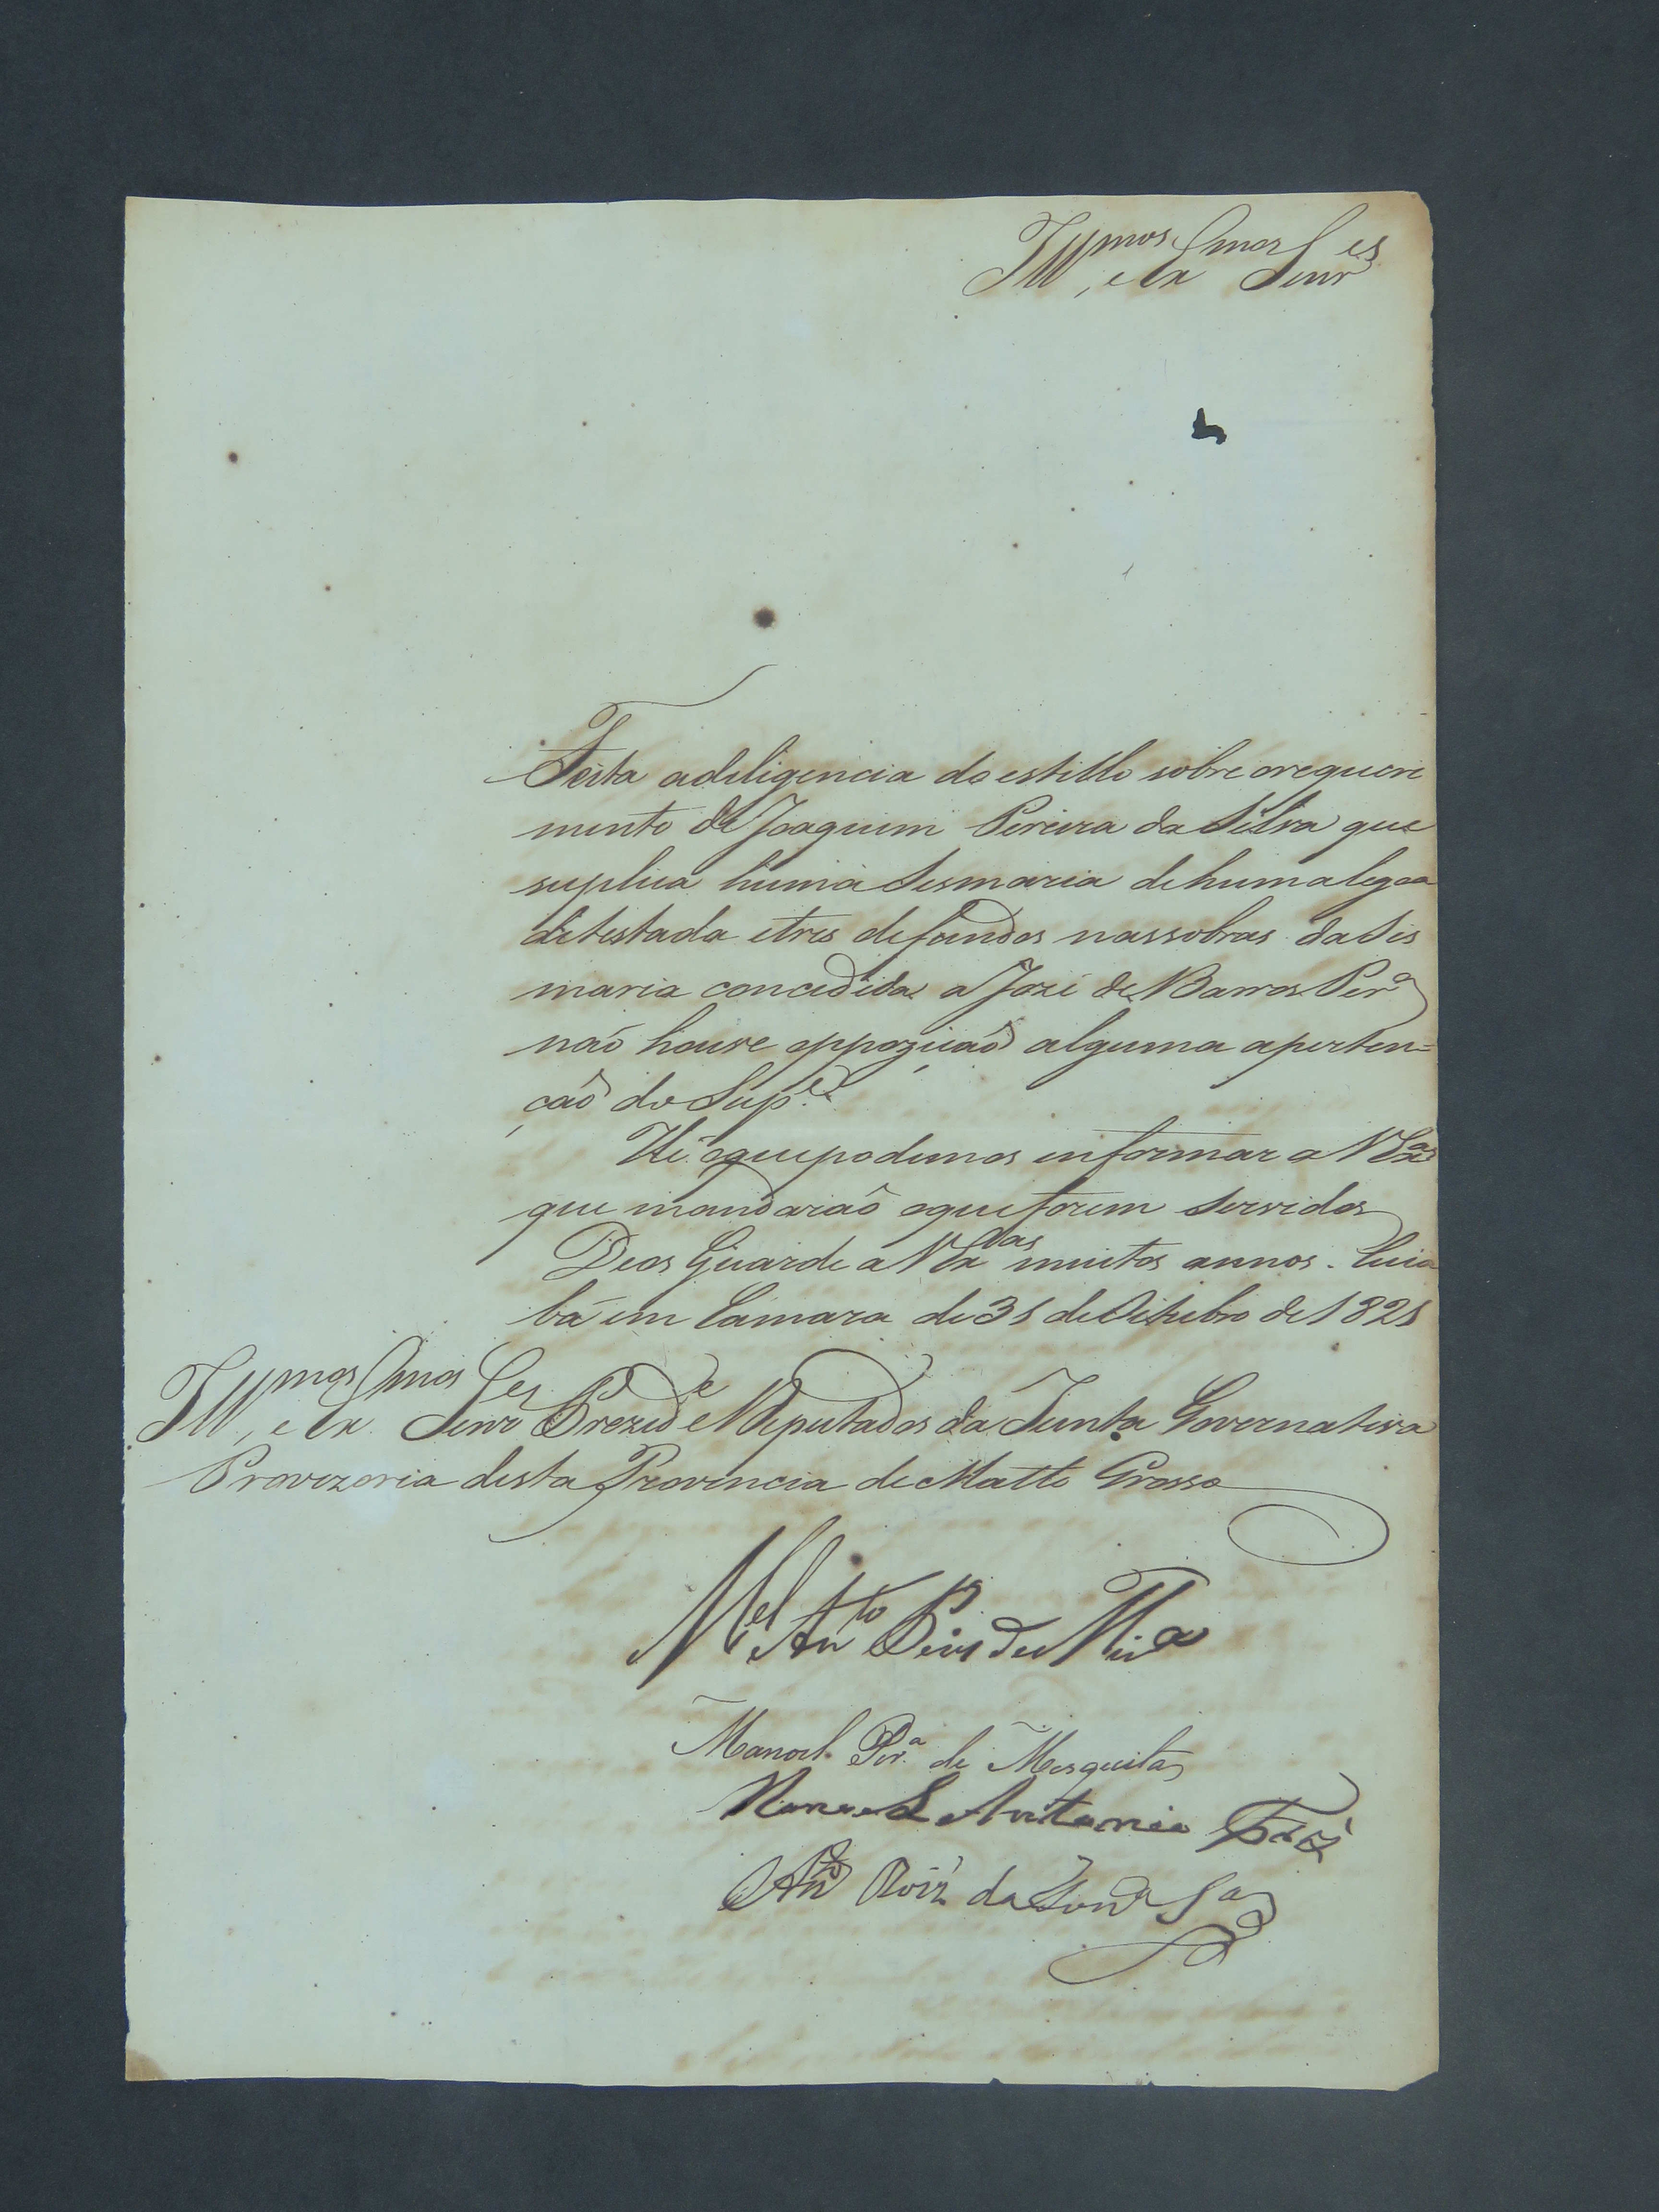 Illmos, e Exmos Senres
Feita adeligencia do estillo sobre orequeri
mento de Joaquim Pereira da Silva que
suplica huma Sesmaria dehumalegoa
detestada etres defundos nassobras da Ses
maria concedida a Jozé de Barros Pera
naõ houve oppoziçaõ alguma aperten=
çaõ do Supe.
Hé oquepodemos informar a VExas
que mandaraõ oqueforem Servidos
Deos Guarde a VExas muitos annos. Cuia
bá em Camara de 31 de Oitubro de 1821
Illmos, e Exmos Senres Prezide e Deputados da Junta Governativa
Provizoria desta Provincia de Matto Grosso
Mel Anto Pires de Mira
Manoel Pera de Mesquita
Manoel Antonio
Anto Roiz da